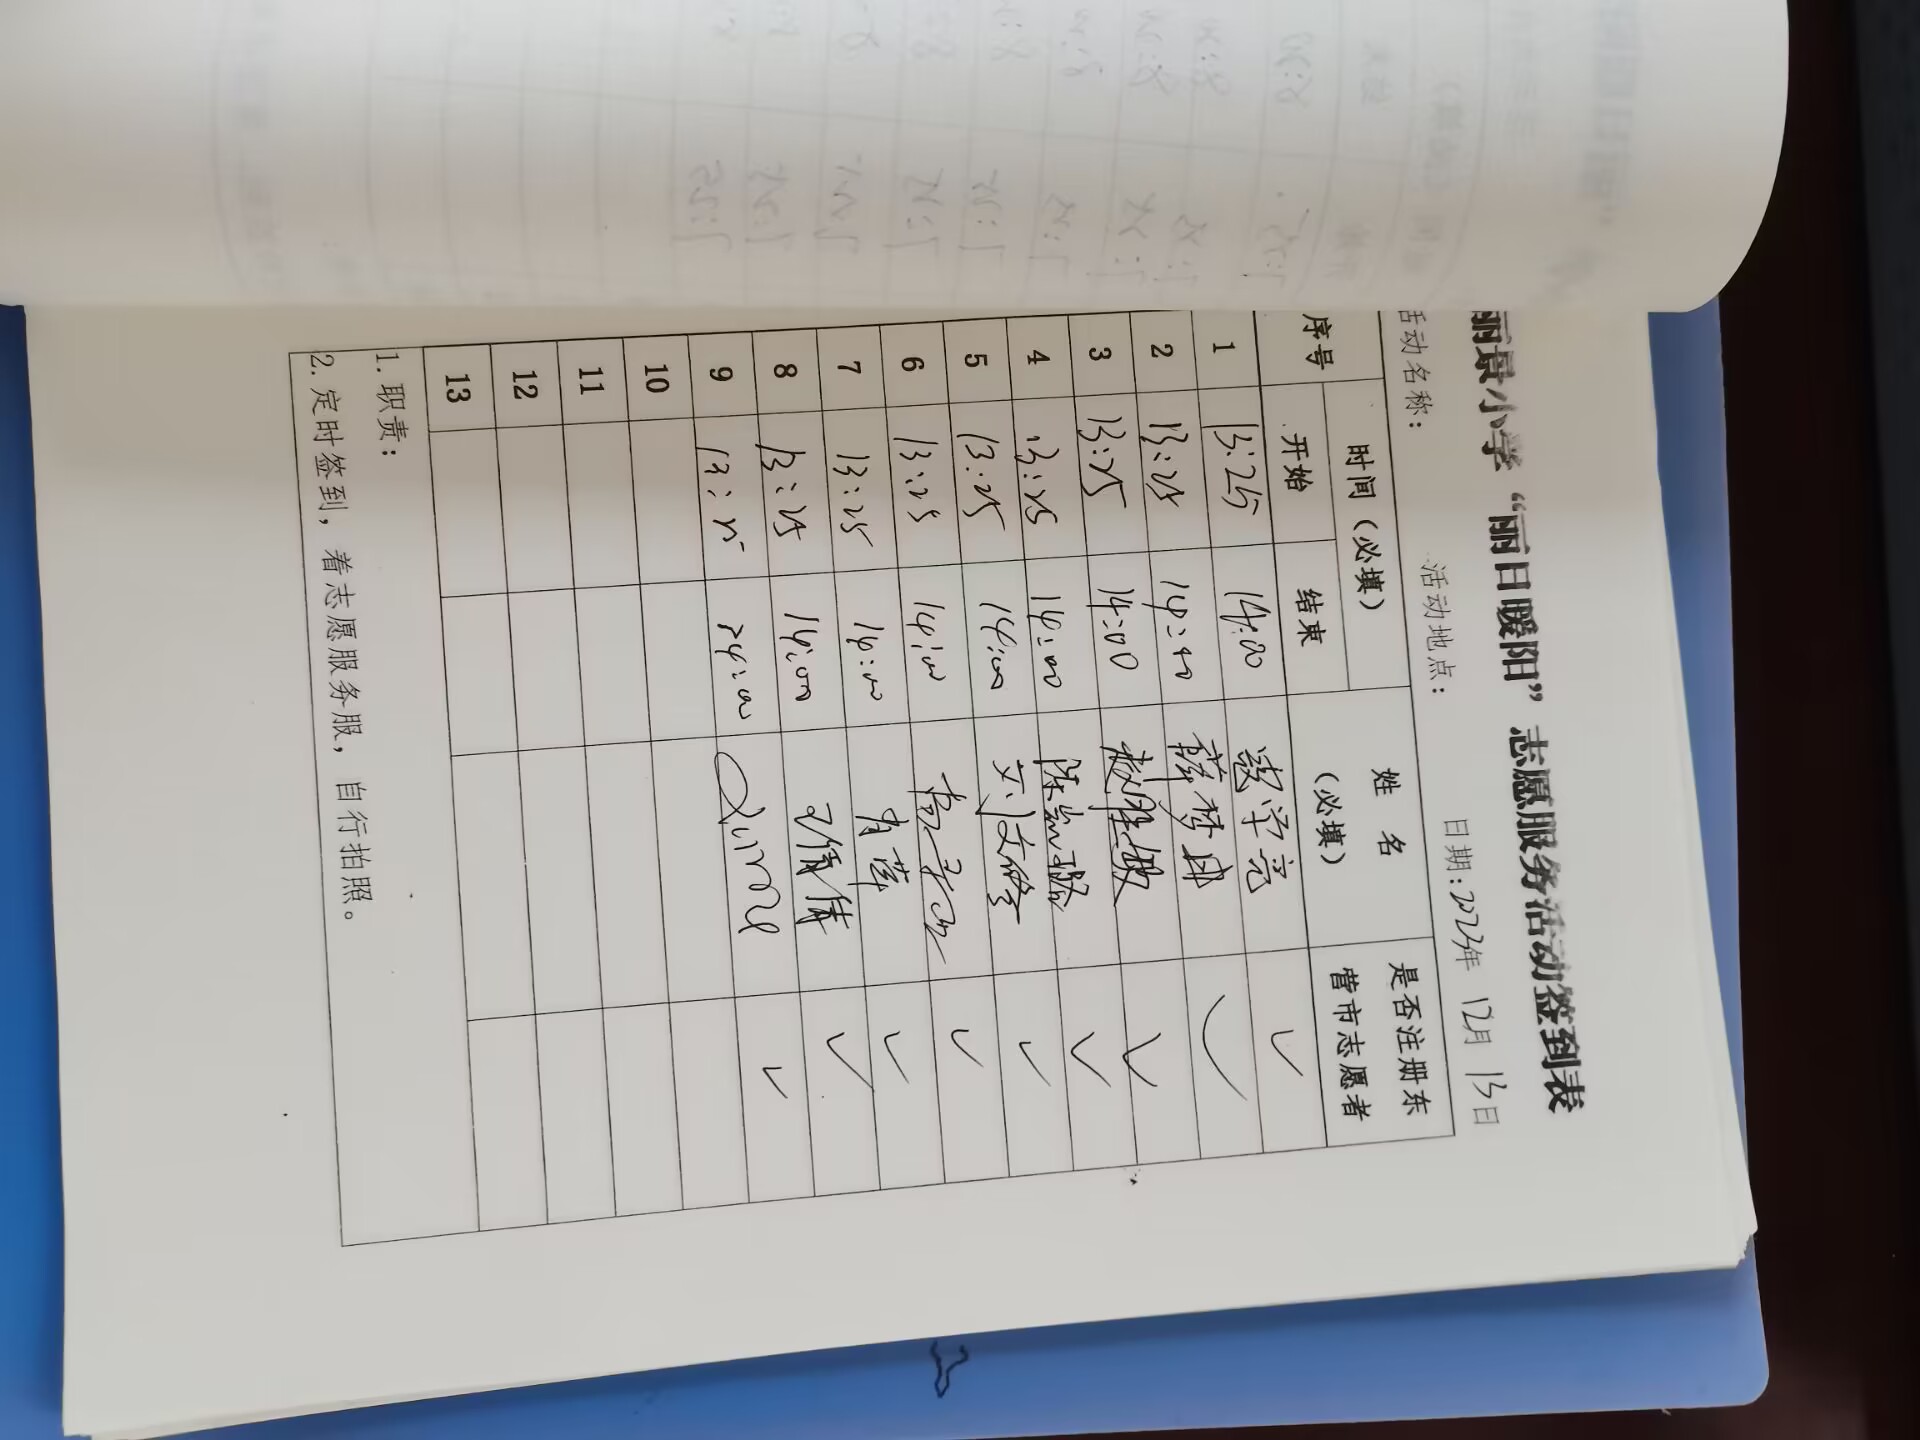 丽景小学“丽日暖阳”志愿服务活动签到表
活动名称： 活动地点： 日期:2023年 12月 13日
序号 时间（必填） 姓 名（必填） 是否注册东营市志愿者
开始 结束
1 13:25 14:00 学亮 ✓
2 13:25 14:00 薛梦冉 ✓
3 13:25 14:00 赵胜敏 ✓
4 13:25 14:00 陈岚璐 ✓
5 13:25 14:00 刘文修 ✓
6 13:25 14:00 ✓
7 13:25 14:00 肖萍 ✓
8 13:25 14:00 倩倩 ✓
9 13:25 14:00 ✓
10
11
12
13
1. 职责：
2. 定时签到，着志愿服务服，自行拍照。